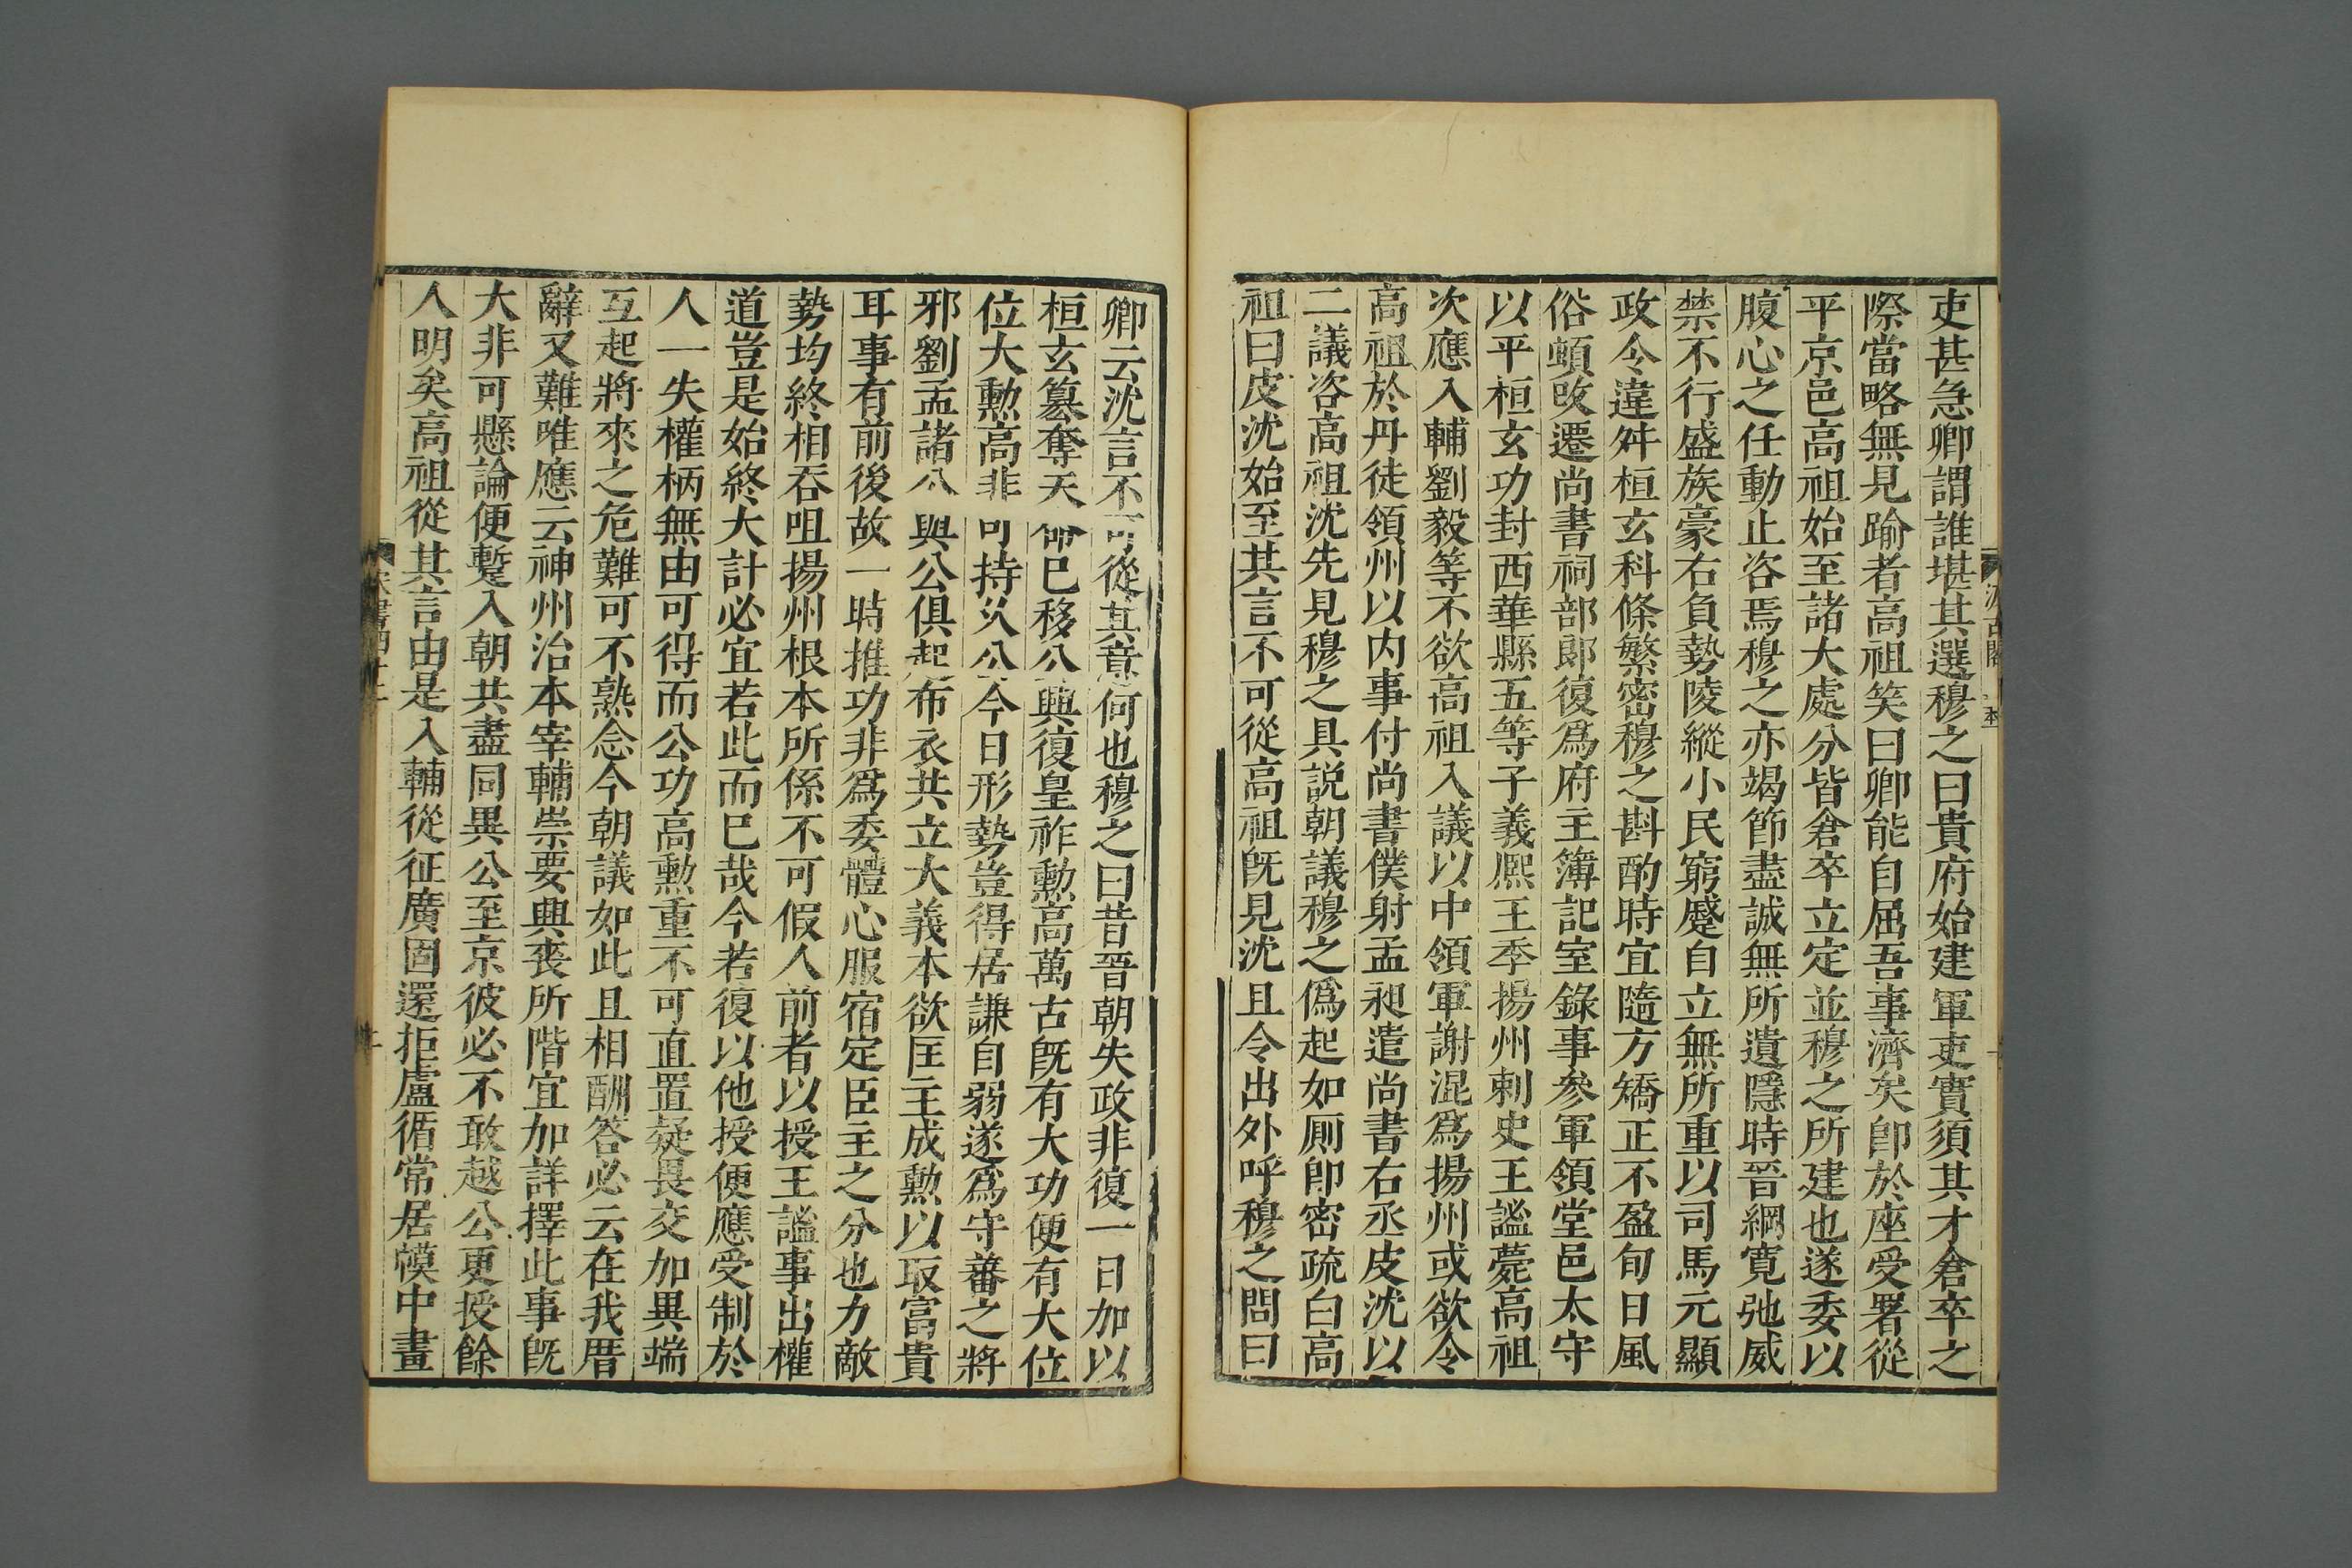 吏甚急卿謂誰堪其選穆之曰貴府始建軍吏實須其才倉卒之
際當略無見踰者高祖笑曰卿能自屈吾事濟矣卽於座受署從
平京邑高祖始至諸大處分皆倉卒立定並穆之所建也遂委以
腹心之任動止咨焉穆之亦竭節盡誠無所遺隱時晉綱寬弛威
禁不行盛族豪右負勢陵縱小民窮蹙自立無所重以司馬元顯
政令違舛桓玄科條繁密穆之斟酌時宜隨方矯正不盈旬日風
俗頓改遷尚書祠部郎復爲府主簿記室錄事參軍領堂邑太守
以平桓玄功封西華縣五等子義熈王季揚州刺史王謐薨高祖
次應入輔劉毅等不欲高祖入議以中領軍謝混爲揚州或欲令
高祖於丹徒領州以内事付尚書僕射孟昶遣尚書右丞皮沈以
二議咨高祖沈先見穆之具說朝議穆之僞起如厠卽密疏白高
祖曰皮沈始至其言不可從高祖旣見沈且令出外呼穆之問曰
卿云沈言不可從其意何也穆之曰昔晉朝失政非復一日加以
桓玄簒奪天命已移公興復皇祚勳高萬古旣有大功便有大位
位大勳高非可持久公今日形勢豈得居謙自弱遂爲守蕃之將
邪劉孟諸公與公俱起布衣共立大義本欲匡主成勳以取富貴
耳事有前後故一時推功非爲委體心服宿定臣主之分也力敵
勢均終相吞咀揚州根本所係不可假人前者以授王謐事出權
道豈是始終大計必宜若此而已哉今若復以他授便應受制於
人一失權柄無由可得而公功高勳重不可直置疑畏交加異端
互起將來之危難可不熟念今朝議如此且相酬答必云在我厝
辭又難唯應云神州治本宰輔崇要興喪所階宜加詳擇此事旣
大非可懸論便蹔入朝共盡同異公至京彼必不敢越公更授餘
人明矣高祖從其言由是入輔從征廣固還拒盧循常居幙中畫